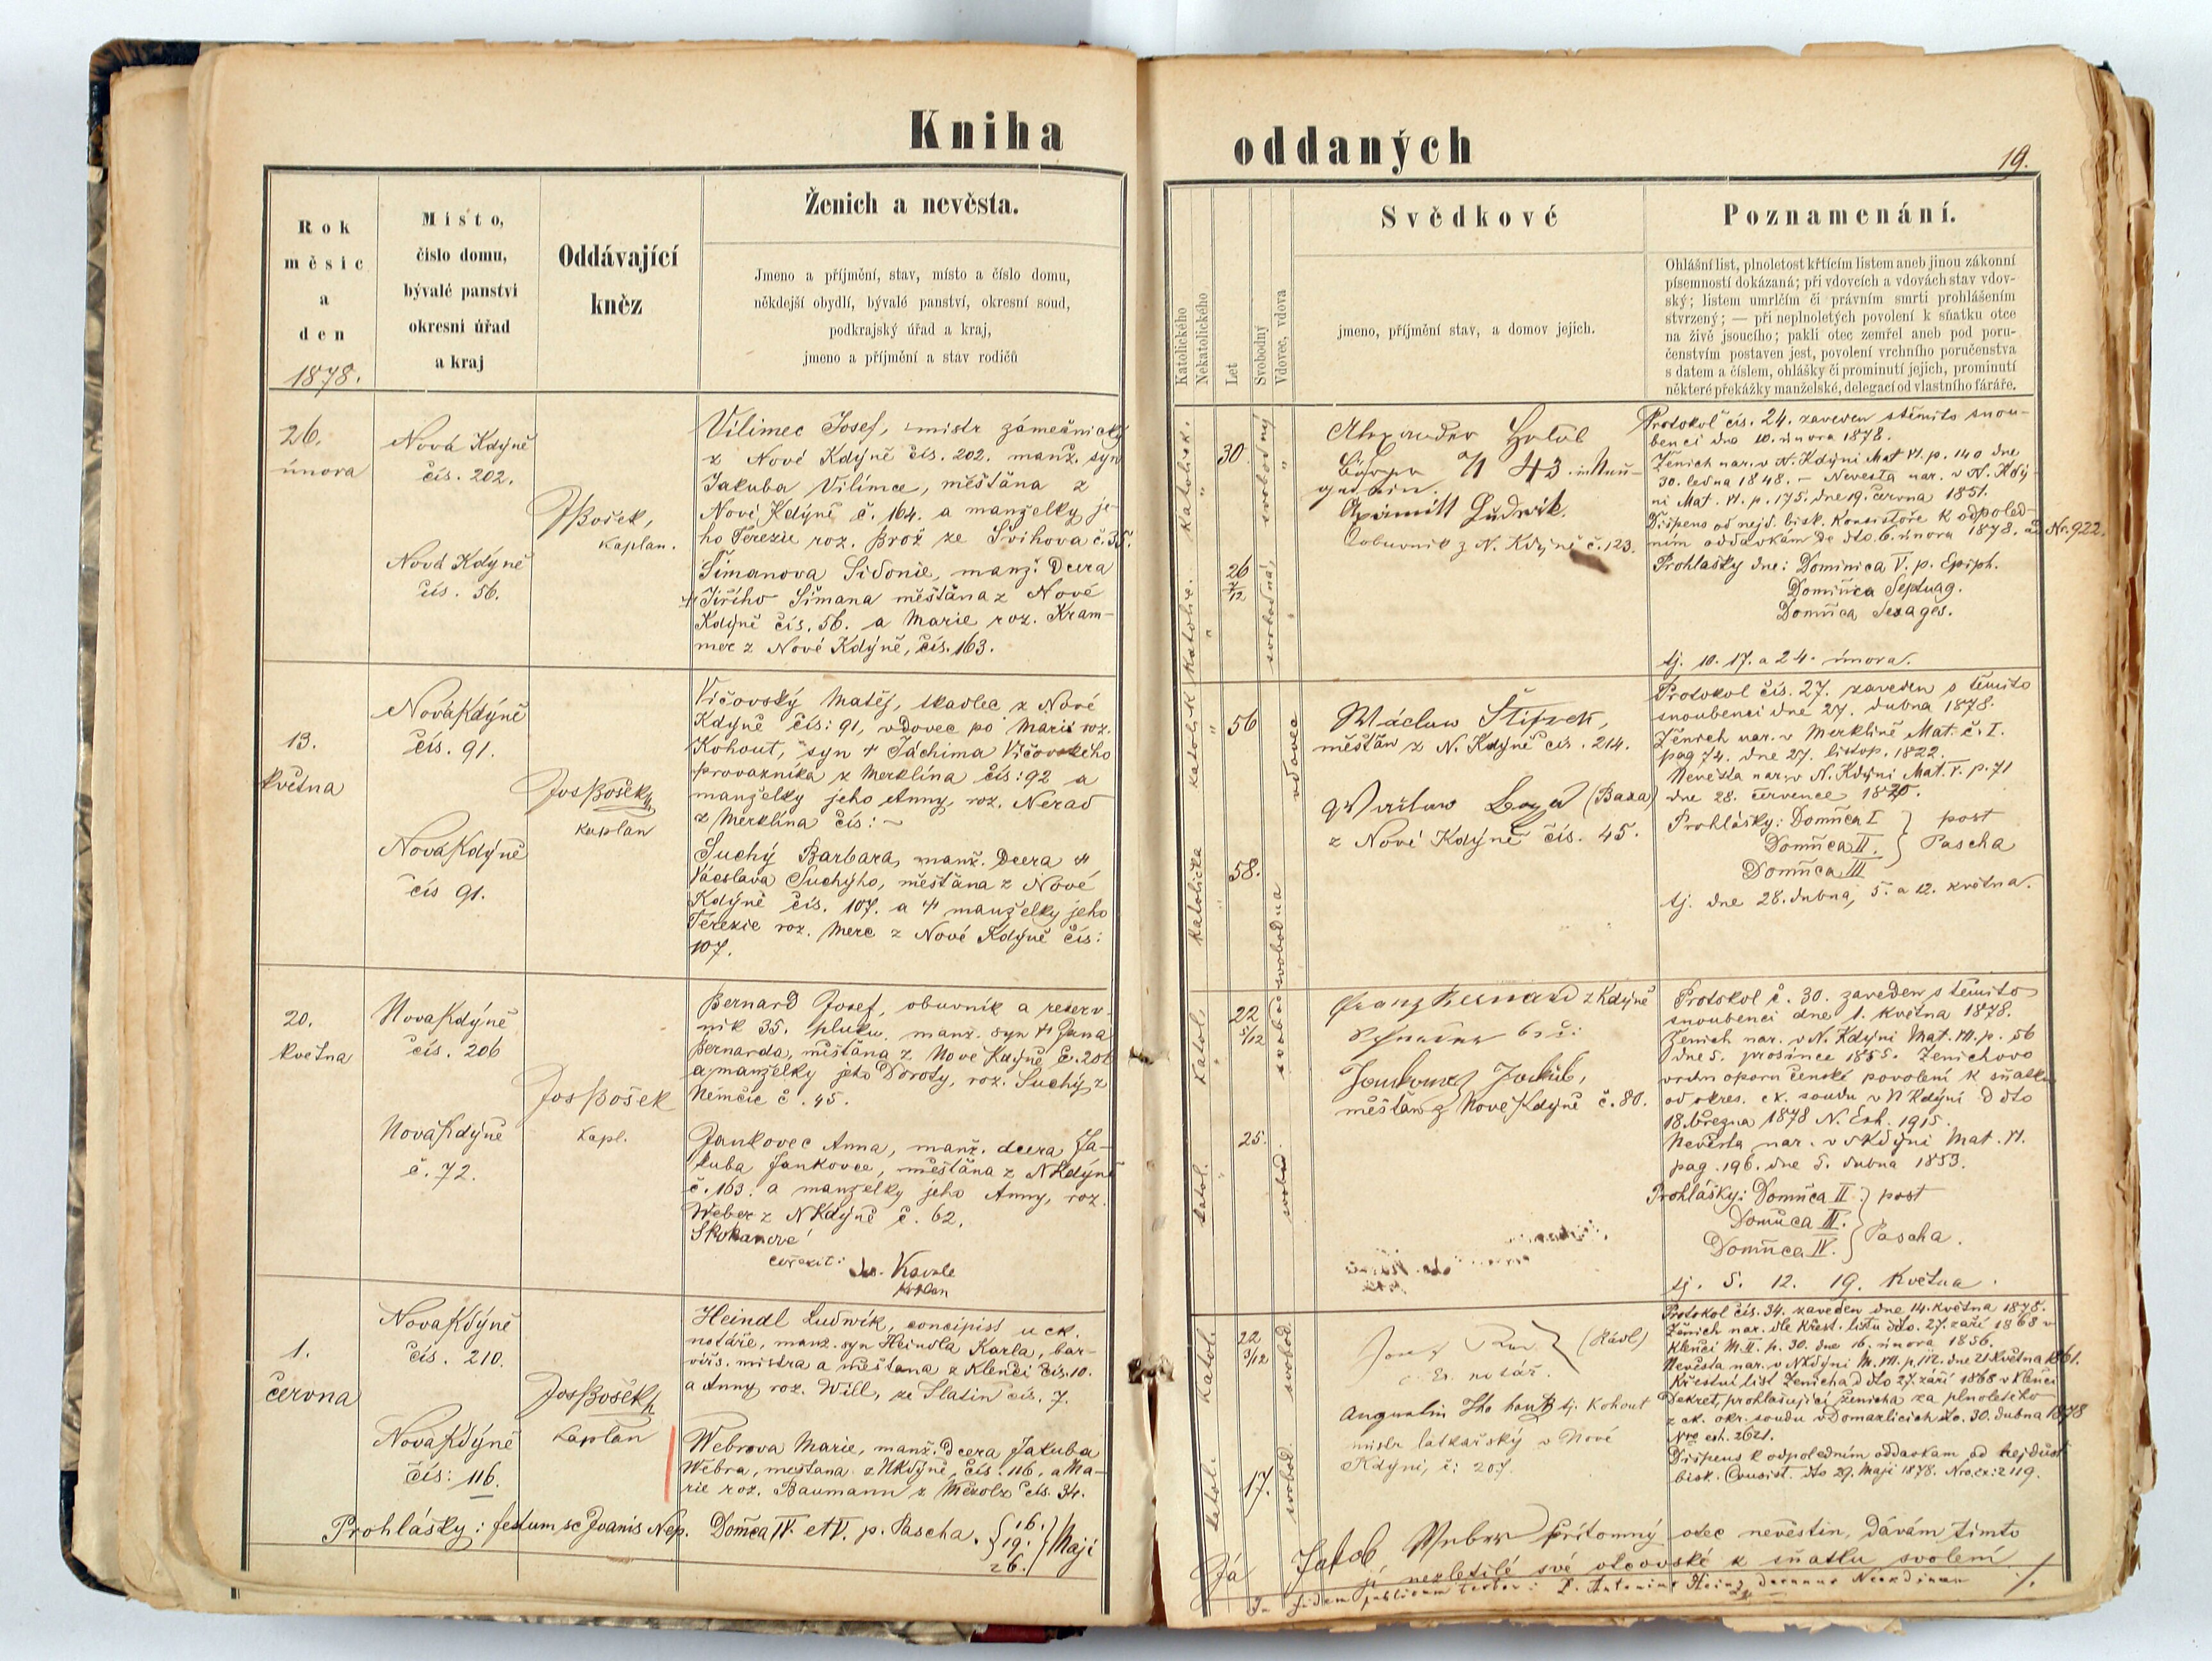 Kniha
Rok
měsíc
a
den
1878.
Místo,
číslo domu,
bývalé panství
okresní úřad
a kraj
Oddávající
kněz
Ženich a nevěsta.
Jmeno a příjmění, stav, místo a číslo domu,
někdejší obydlí, bývalé panství, okresní soud,
podkrajský úřad a kraj,
jmeno a příjmění a stav rodičů
26.
února
Nová Kdýně
čís. 202.
Nová Kdýně
čís. 56.
JBošek,
Kaplan.
Vilimec Josef, mistr zámečnický
z Nové Kdýně čís. 202. manž. syn
Jakuba Vilímce, měšťana z
Nové Kdýně č. 164. a manželky je-
ho Terezie roz. Brož ze Švihova č. 35.
Šimanova Sidonie, manž. dcera
Jiřího Šimana měšťana z Nové
Kdýně čís. 56. a Marie roz. Kram-
mer z Nové Kdýně, čís. 163.
13.
května
Nová Kdýně
čís. 91.
Nová Kdýně
čís 91.
Jos Bošek
Kaplan
Vičovský Matěj, tkadlec z Nové
Kdyně čís: 91, vdovec po Marii roz.
Kohout, syn † Jáchima Vičovského
provazníka z Merklína čís: 92 a
manželky jeho Anny, roz. Nerad
z Merklína čís: –
Suchý Barbara, manž. dcera †
Václava Suchýho, měšťana z Nové
Kdýně čís. 107. a † manželky jeho
Terezie roz. Merc z Nové Kdýně čís:
107.
20.
května
Nová Kdýně
čís. 206
Nová Kdýně
č. 72.
Jos Bošek
Kapl.
Bernard Josef, obuvník a reserv-
ník 35. pluku, manž. syn † Jana
Bernarda, měšťana z Nové Kdyně č. 206
a manželky jeho Doroty, roz. Suchý z
Němčic č. 45.
Jankovec Anna, manž. dcera Ja-
kuba Jankovce, měšťana z N Kdýně
č. 163. a manželky jeho Anny, roz.
Weber z N Kdýně č. 62.
1.
června
Nová Kdýně
čís. 210.
Nová Kdýně
čís: 116.
Jos Bošek
Kaplan
Heindl Ludwík, concipist u ck.
notáře, manž. syn Heindla Karla, bar-
vířs. mistra a měšťana z Klenčí čís. 10.
a Anny roz. Will, ze Slatin čís. 7.
Webrova Marie, manž. dcera Jakuba
Webra, měšťana z N Kdyně, čís. 116, a Ma-
rie roz. Baumann z Mezolz čís. 34.
Prohlášky: festum sc Joanis Nep. Domca IV. et V. p. Pascha. 16. 19. 26. Maji
oddaných
19.
Katolického
Nekatolického
Let
Svobodný
Vdovec, vdova
Svědkové
jmeno, příjmění stav, a domov jejich.
Poznamenání.
Ohlášní list, plnoletost křtícím listem aneb jinou zákonní
písemností dokázaná; při vdovcích a vdovách stav vdov-
ský; listem umrlčím či právním smrti prohlášením
stvrzený; — při neplnoletých povolení k sňatku otce
na živě jsoucího; pakli otec zemřel aneb pod poru-
čenstvím postaven jest, povolení vrchního poručenstva
s datem a číslem, ohlášky či prominutí jejich, prominutí
některé překážky manželské, delegací od vlastního faráře.
Katolick.
30
svobodný
Katolic.
26 7/12
svobodná
Alexander Holub
N 43
Ludvik.
z N. Kdýně č. 123.
Protokol čís. 24. zaveden stěmito snou-
benci dne 10. února 1878.
Ženich nar. v N. Kdýni Mat VI. p. 140 dne
30. ledna 1848. – Nevesta nar. v N. Kdý-
ni Mat. VI. p. 175. dne 19. června 1851.
Dispens od nejd. bisk. Konsistoře k odpoled-
ním oddavkám de dto. 6. února 1878. ad Nr. 922.
Prohlášky dne: Dominica V. p. Epiph.
Domñca Septuag.
Domñca Sexages.
tj. 10. 17. a 24. února.
Katolik
56
vdovec
Katolička
58.
svobodna
Wáclaw
měšťan z N. Kdýně čís. 214.
(Baxa)
z Nové Kdýně čís. 45.
Protokol čís. 27. zaveden s těmito
snoubenci dne 27. dubna 1878.
Ženich nar. v Merklíně Mat. č. I.
pag 74. dne 27. listop. 1822.
Nevěsta nar. v N. Kdýni Mat. V. p. 71
dne 28. července 1820.
Prohlášky: Domñca I post
Domñca II. Pascha
Domñca III
tj. dne 28. dubna, 5. a 12. května.
Katol.
22 5/12
svobod
Katol.
25.
svobod.
Franz Bernard z Kdýně
Jankovec Jakub,
měšťan z Nové Kdýně č. 80.
Protokol č. 30. zaveden s těmito
snoubenci dne 1. května 1878.
Ženich nar. v N. Kdýni Mat. VII. p. 56
dne 5. prosince 1855. Ženichovo
povolení k sňatku
od okres. ck. soudu v N Kdýni d dto
18. března 1878 N. Exh. 1915.
Nevěsta nar. v N Kdyni Mat. VI.
pag. 196. dne 5. dubna 1853.
Prohlášky: Domñca II. post
Domñca III. Pascha.
Domñca IV.
tj. 5. 12. 19. Května.
Katol.
22 3/12
svobod.
Katol.
17.
svobod.
(Rádl)
notář.
Augustin tj. Kohout
mistr látkařský v Nové
Kdýni, č: 207.
Protokol čís. 34. zaveden dne 14. května 1878.
Ženich nar. dle křest. listu dto. 27. září 1868 v
Klenčí M. II. p. 30. dne 16. února 1856.
Nevěsta nar. v N Kdýni M. VII. p. 112. dne 21 května 1861.
Křestní list ženicha d dto 27. září 1868 v Klenčí
Dekret, prohlašující ženicha za plnoletého
z ck. okr. soudu v Domažlicích dto. 30. dubna 1878
Nro exh. 2621.
Dispens k odpoledním oddavkam od nejdůst
bisk. Consist. dto 29. Maji 1878. Nro. ex: 2119.
Já Jakob Weber přítomný otec nevěstin, dávám tímto
jí nezletilé své otcovské k sňatku svolení